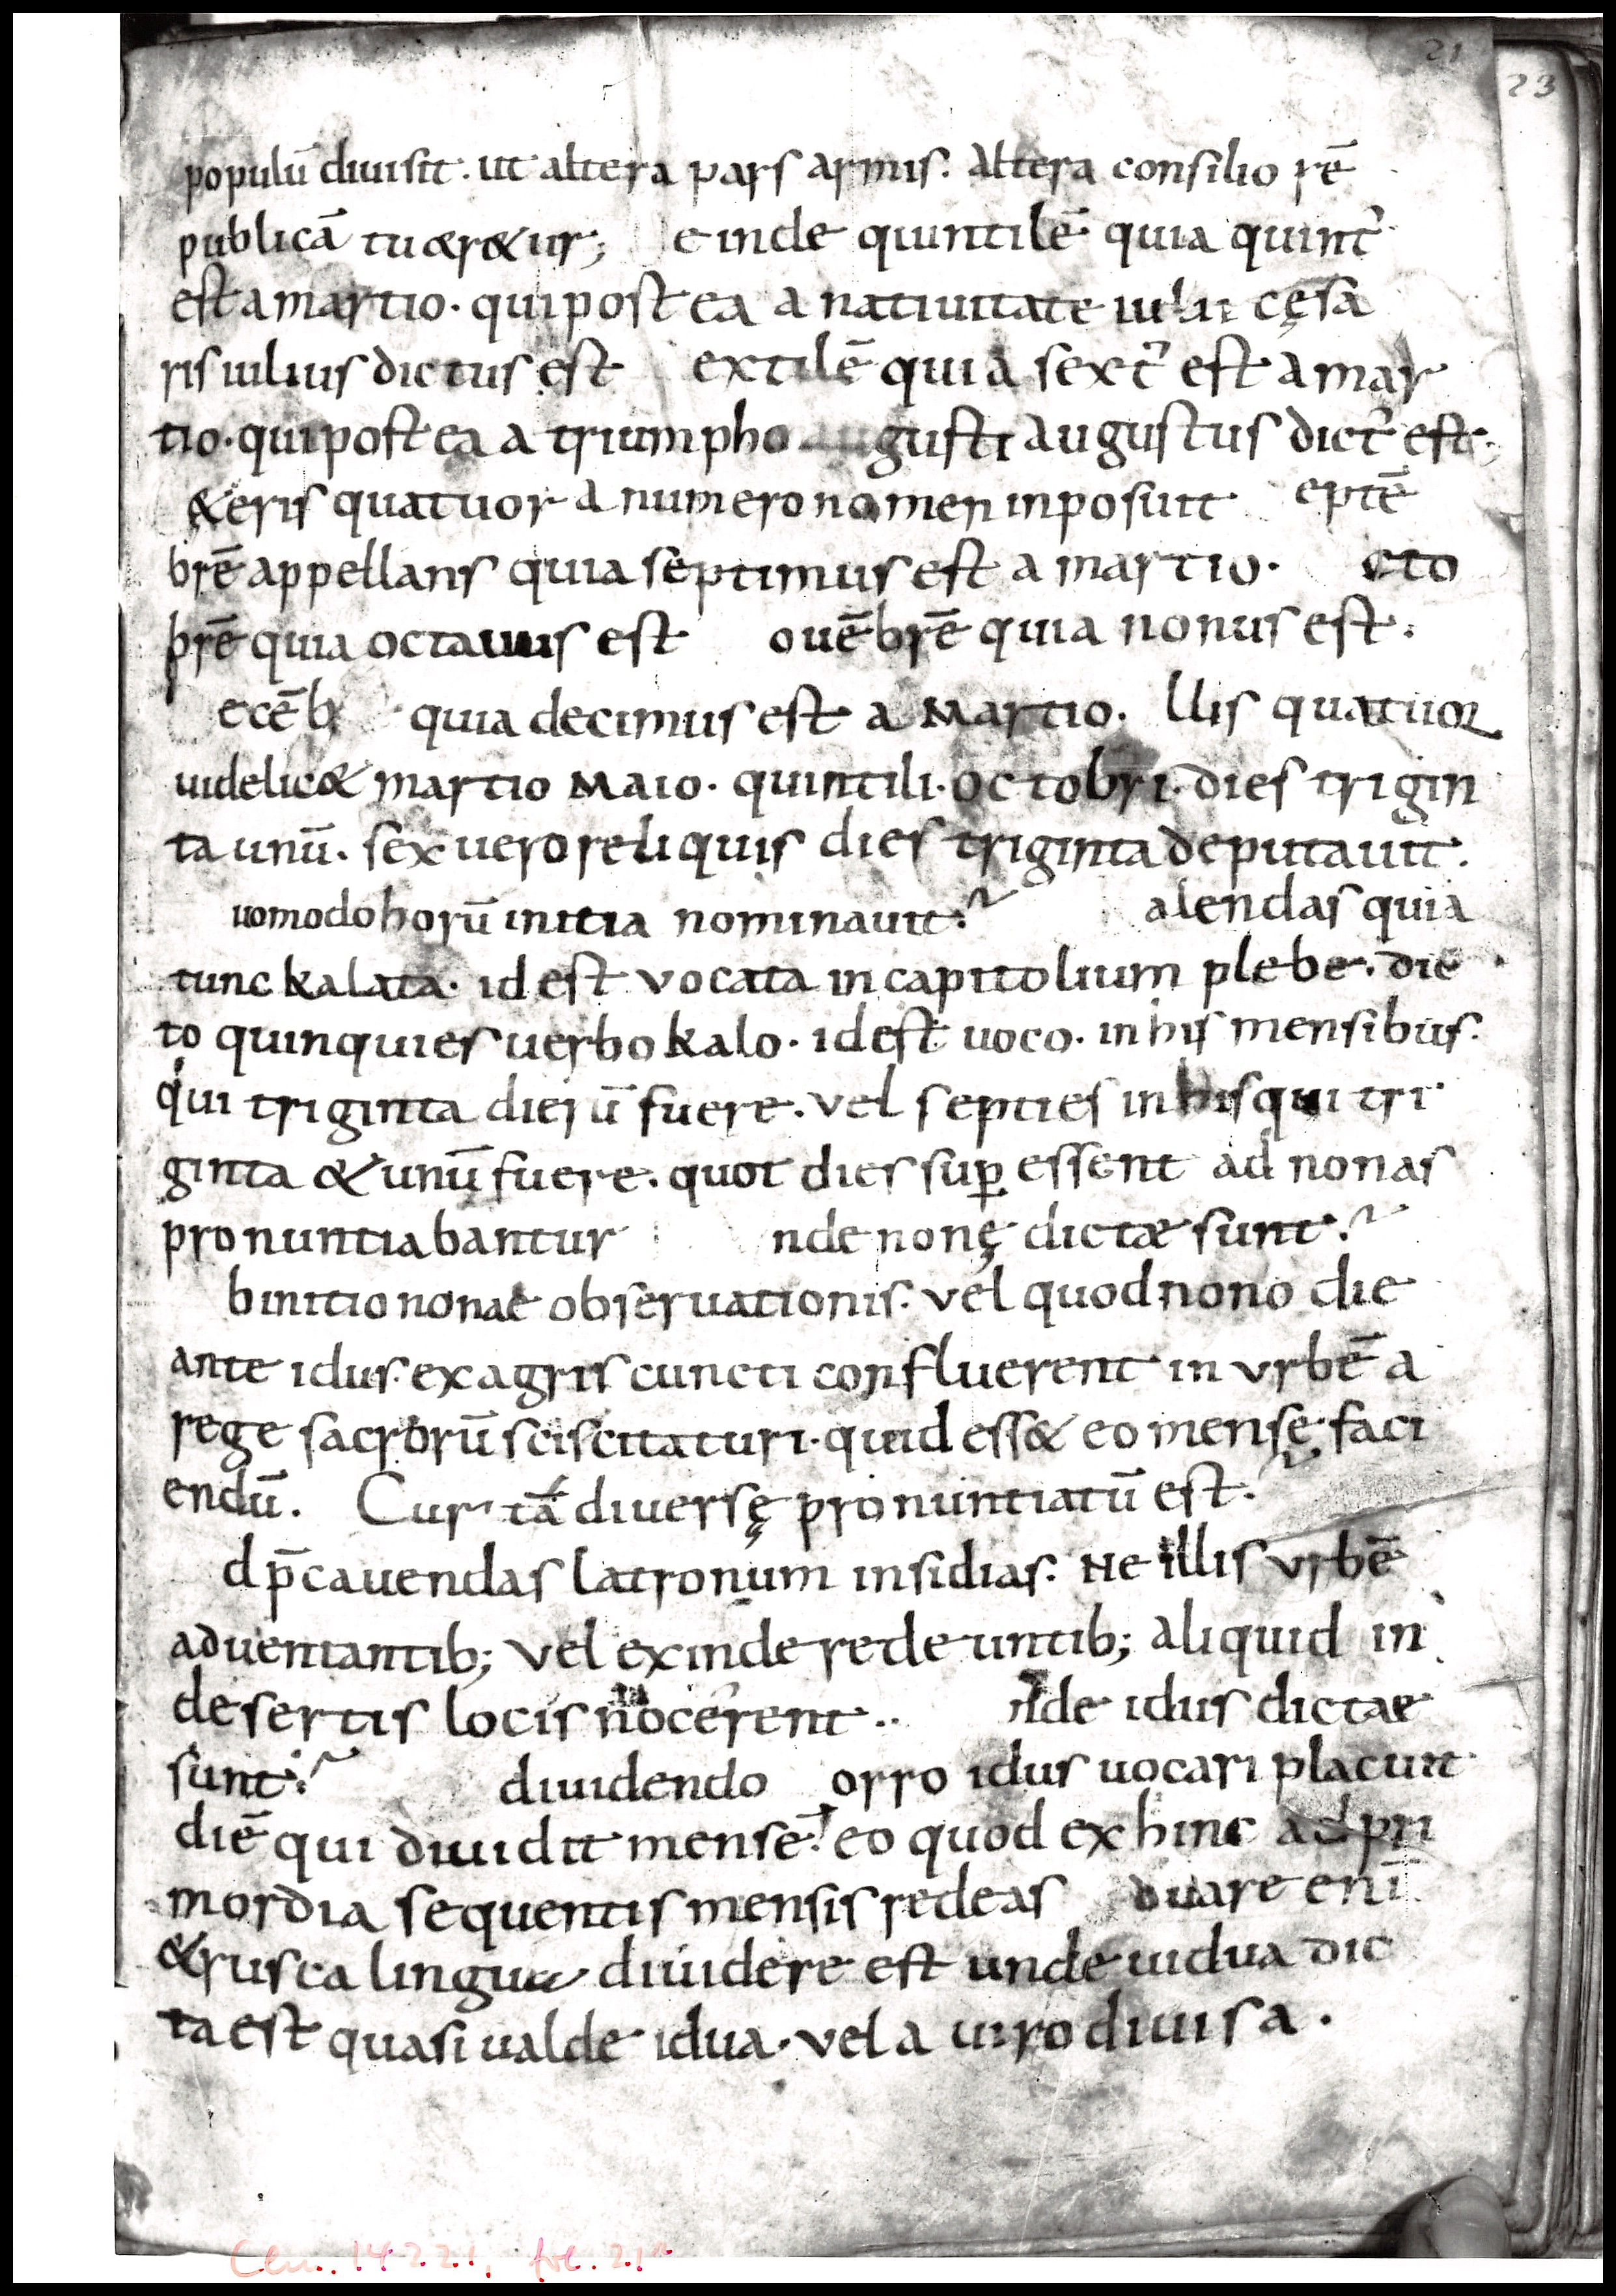 21
23
populū diuisit · ut altera pars armis · altera consilio rē
publicā tuaer&ur; einde quintilē quia quint᾽
est a martio · qui postea a natiuitate iulii cęsa
ris iulius dictus est extilē quia sext᾽ est a mar
tio · qui postea a triumpho gusti augustus dict᾽ est;
&eris quatuor a numero nomen inposuit eptē
brē appellans quia septimus est a martio · cto
brē quia octauus est ouēbrē quia nonus est ·
ecēb quia decimus est a Martio · llis quatuor
uidelic& martio Maio · quintili · octobri · dies trigin
ta unū · sex uero reliquis dies triginta deputauit ·
uomodo horū initia nominauit? alendas quia
tunc kalata · id est vocata in capitolium plebe · die
to quinquies uerbo kalo · id est uoco · in his mensibus ·
qui triginta dierū fuere · vel septies in his qui tri
ginta & unū fuere · quot dies suꝑ essent ad nonas
pronuntiabantur nde nonę dictae sunt?
b initio nonae obseruationis · vel quod nono die
ante idus · ex agris cuncti confluerent in vrbē a
rege sacrorū sciscitaturi · quid ess& eo mense faci
endū · Cur tā diversę pronuntiatū est?
d p̄cauendas latronum insidias · Ne illis vrbē
aduentantib; vel exinde redeuntib; aliquid in
desertis locis nocerent · nde idus dictae
sunt? diuidendo orro idus uocari placuit
diē qui diuidit mensē · eo quod ex hinc ad pri
mordia sequentis mensis redeas duare enī
&rusca lingua diuidere est unde uidua dic
ta est quasi ualde idua · vel a uiro diuisa ·
Clm. 14221, fol. 21r